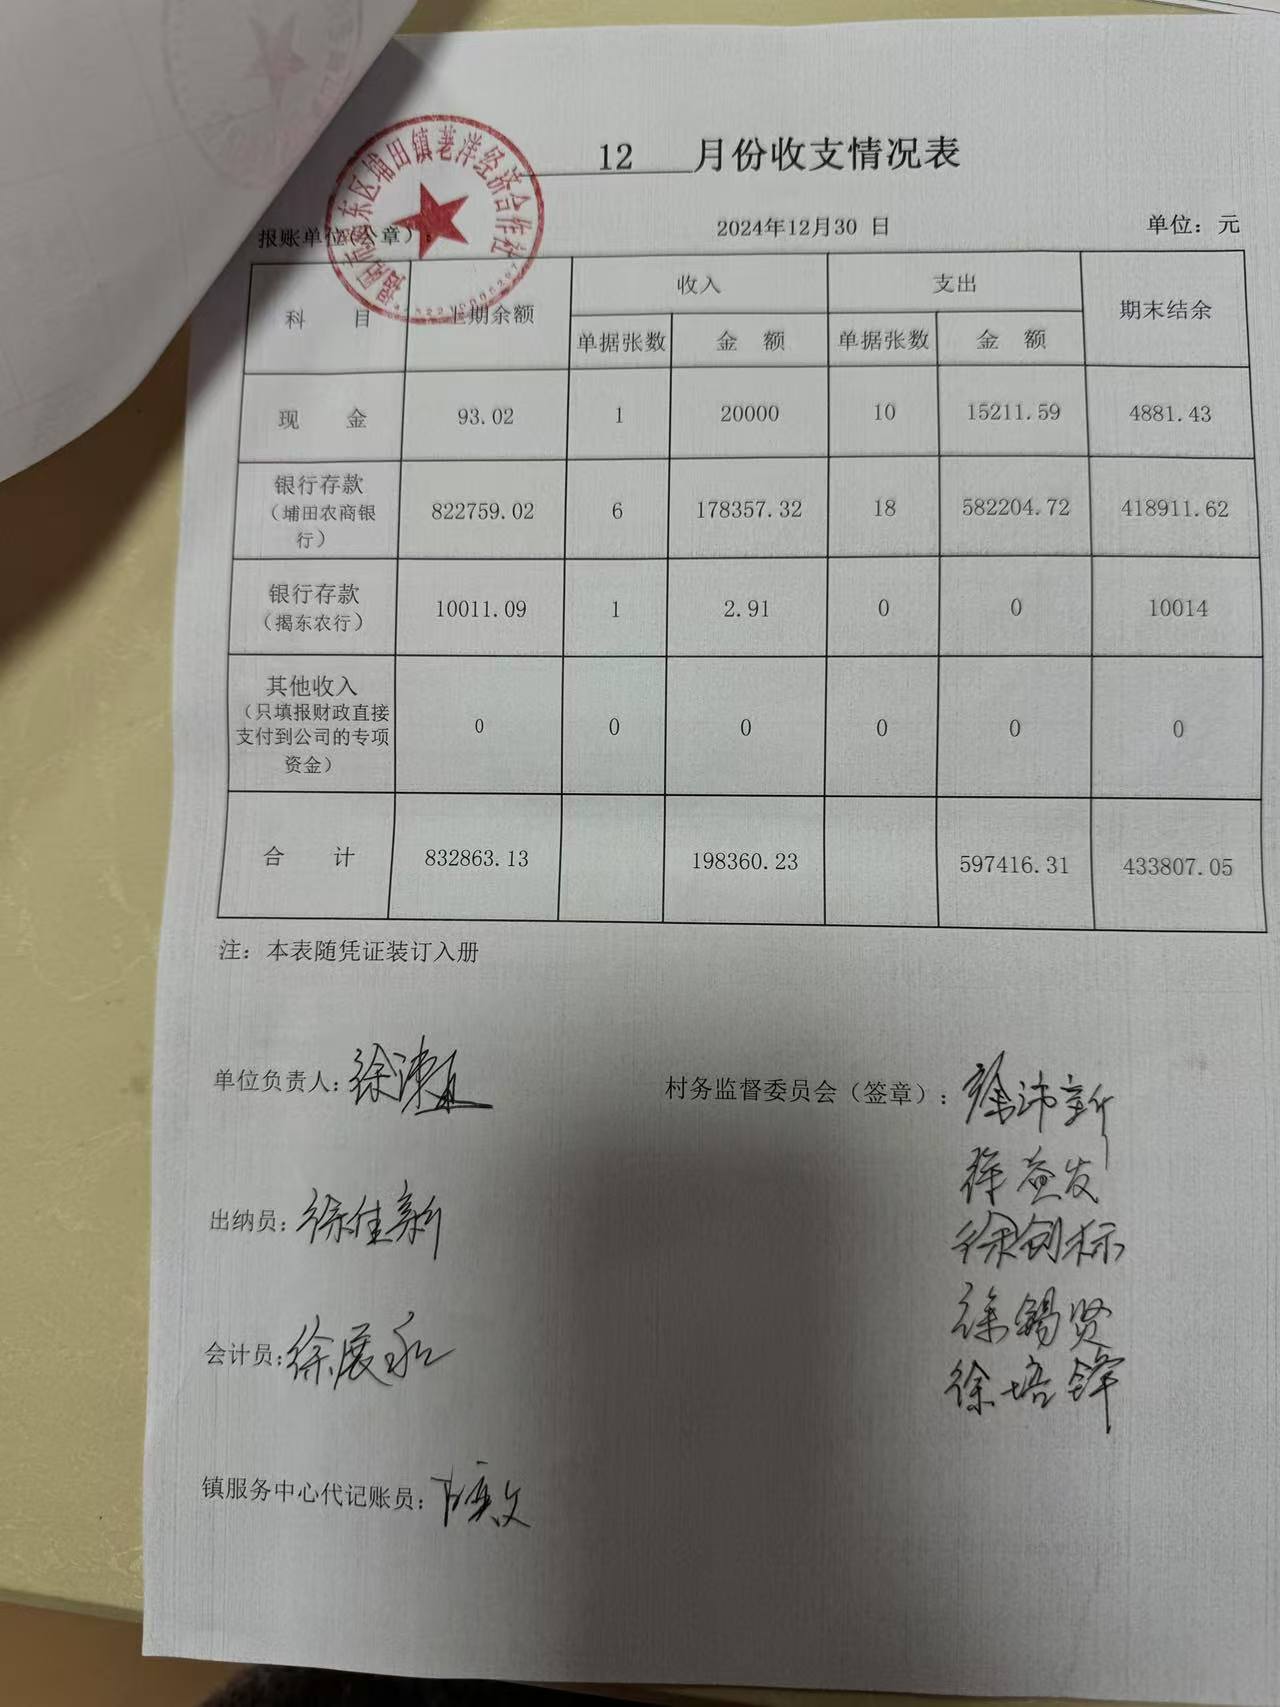 12 月份收支情况表
报账单位(公章): 2024年12月30 日 单位：元
科 目 上期余额 收入 支出 期末结余
单据张数 金 额 单据张数 金 额
现 金 93.02 1 20000 10 15211.59 4881.43
银行存款
（埔田农商银
行） 822759.02 6 178357.32 18 582204.72 418911.62
银行存款
（揭东农行） 10011.09 1 2.91 0 0 10014
其他收入
（只填报财政直接
支付到公司的专项
资金） 0 0 0 0 0 0
合 计 832863.13 198360.23 597416.31 433807.05
注：本表随凭证装订入册
单位负责人：徐
村务监督委员会（签章）：徐沛新
徐益发
徐创标
徐锡贤
徐培锋
出纳员：徐佳新
会计员：徐展
镇服务中心代记账员：